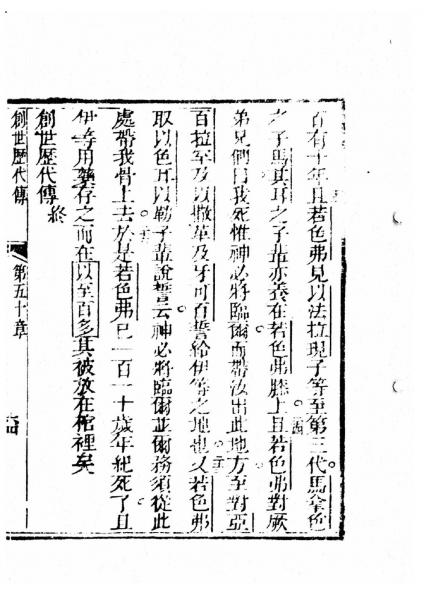 百有十年且若色弗見以法拉現子等至第三代馬拿色
之子馬其耳之子輩亦養在若色弗膝上且若色弗對厥
弟兄們曰我死惟神必將臨爾而帶汝出此地方至對亞
百拉罕及以撒革及牙可百誓給伊等之地也又若色弗
取以色耳以勒子輩說誓云神必將臨爾並爾務須從此
處帶我骨上去於是若色弗已一百一十歲年紀死了且
伊等用藥存之而在以至百多其被放在棺裡矣
創世歷代傳 終
創世歷代傳 第五十章